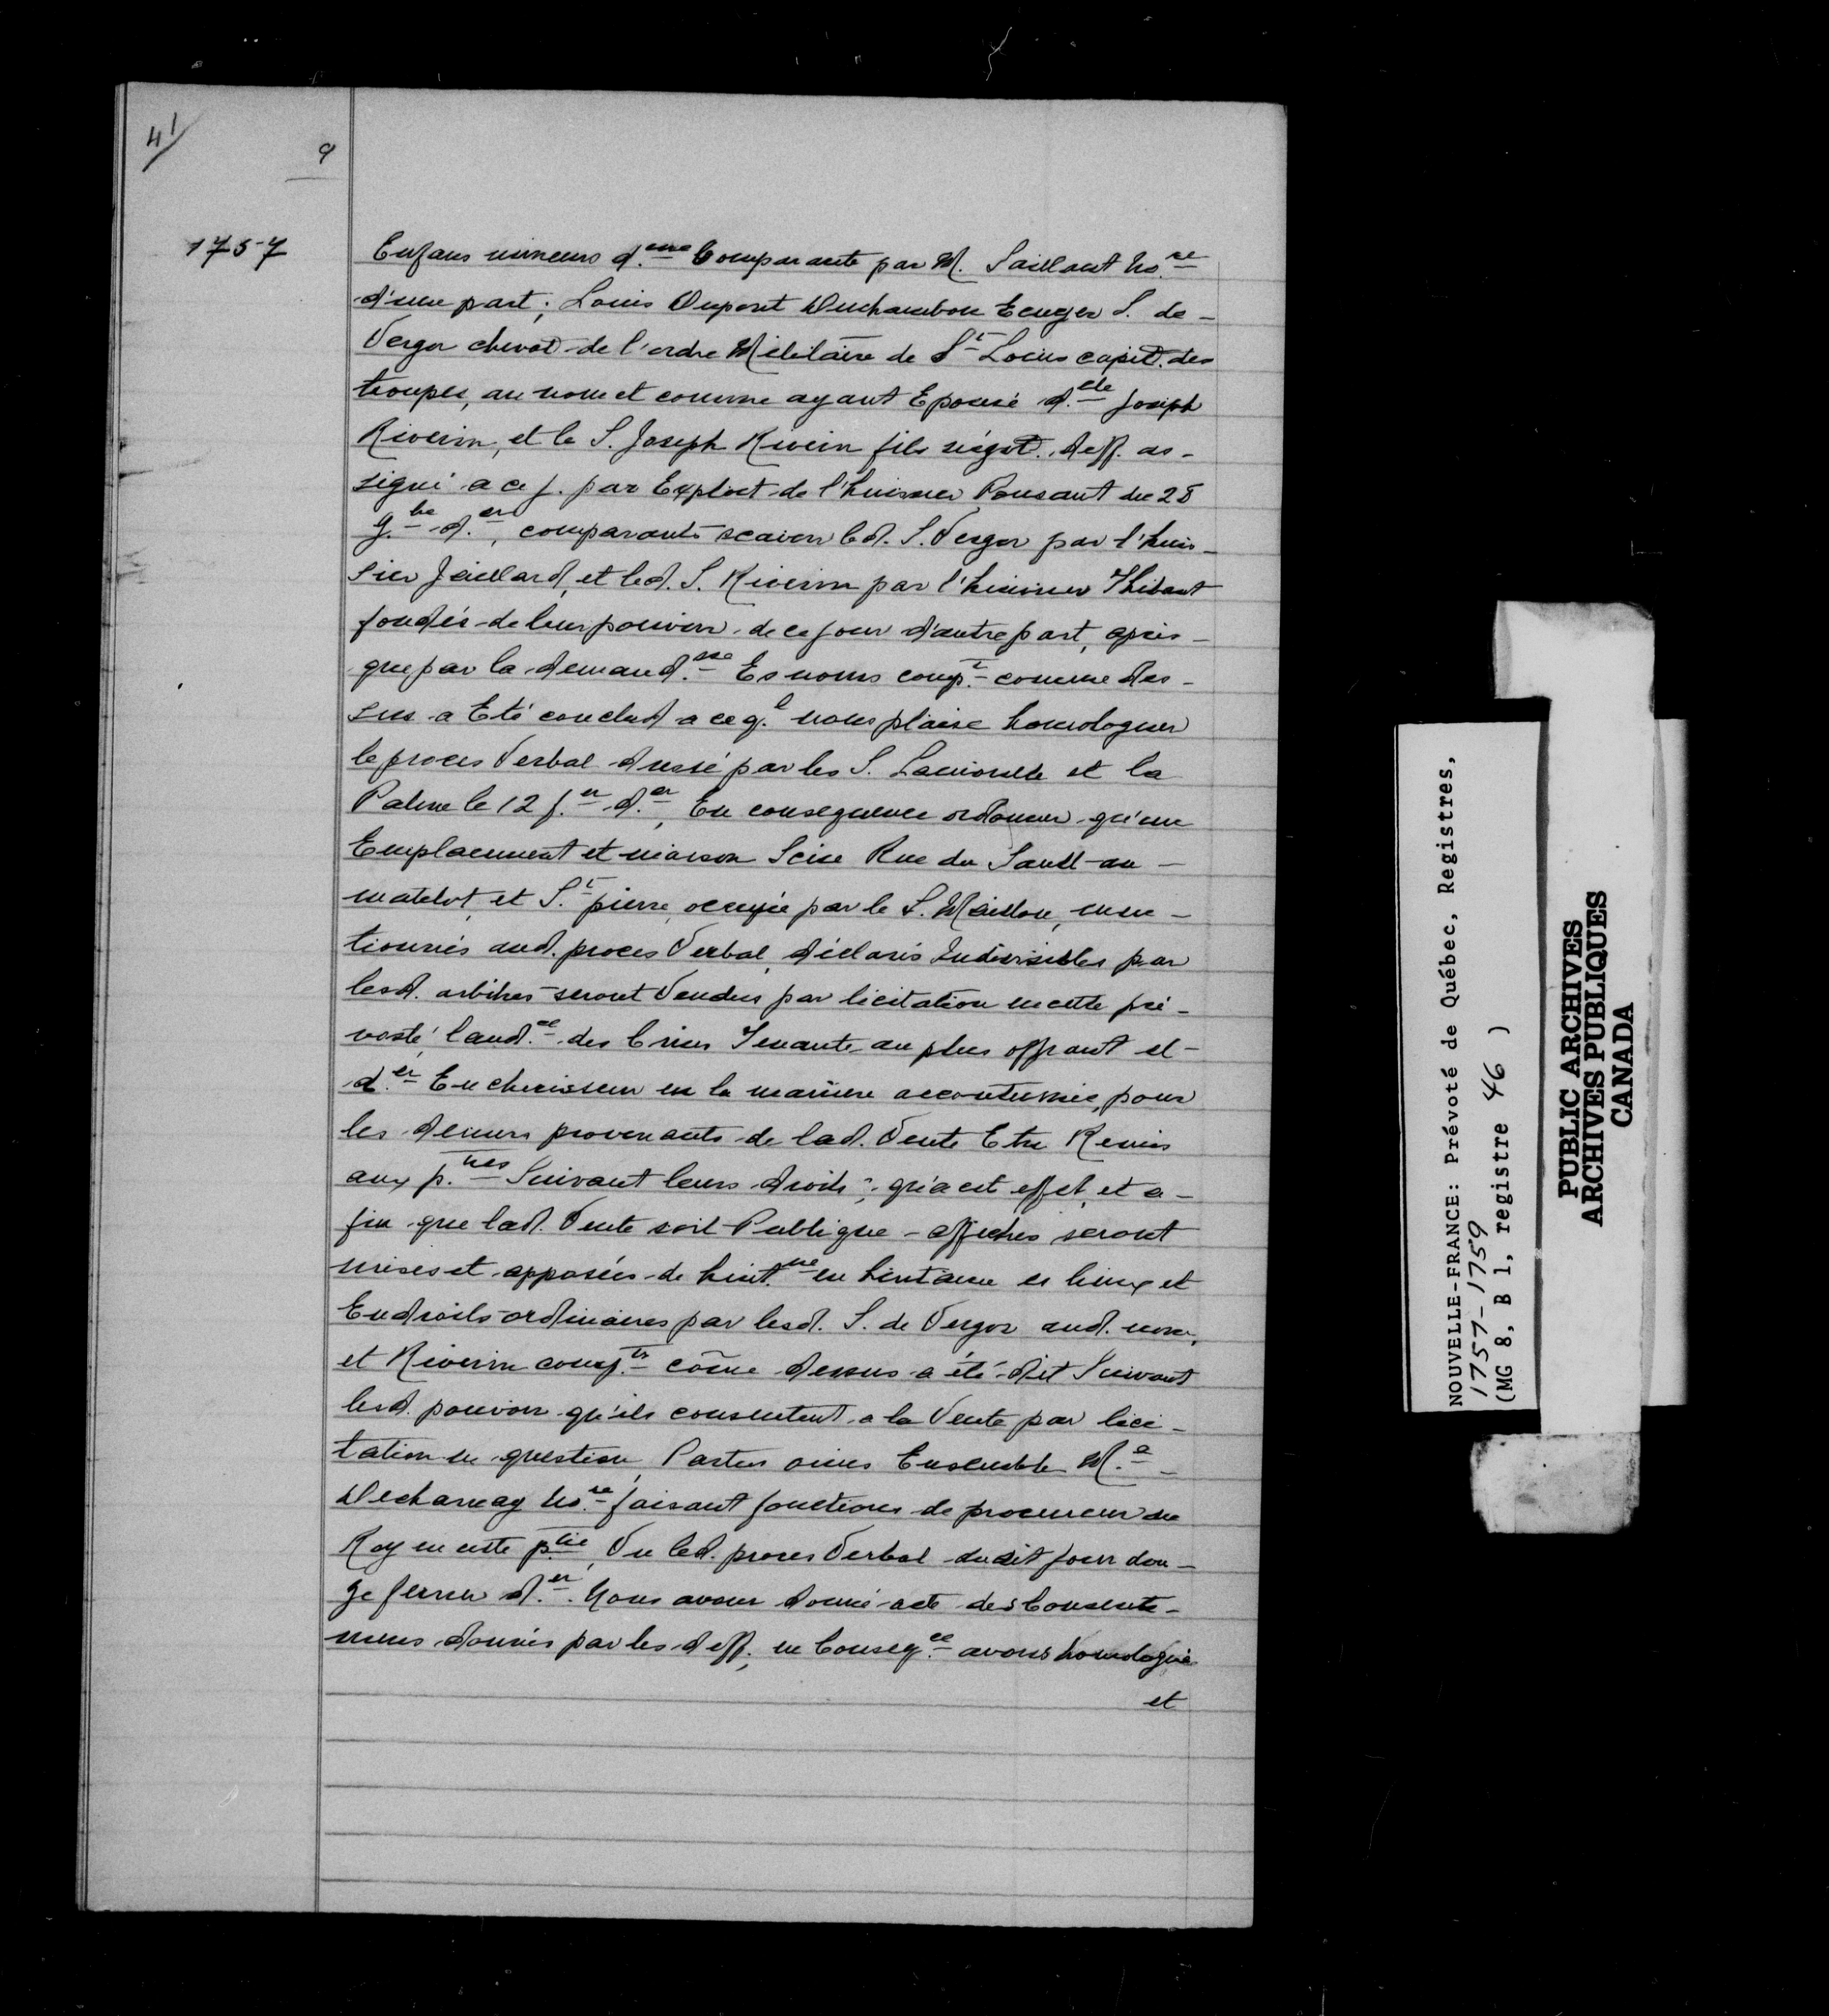 41
9
1757
Enfans mineurs d.me Comparante par M. Saillant No.re
d'une part; Louis Dupont Duchambon Ecuyer S. de -
Vergor cheval. de l'ordre Militaire de St Louis capit. des
troupes, au nom et comme ayant Epousé d.elle Joseph
Riverin, et le S. Joseph Rivein fils négot. deff. as-
signé a ce j. par Exploit de l'huissier Pousant du 28
9.bre d.er, comparants scavoir led. S. Vergor par l'huis-
sier Jaillard, et led. S. Riverin par l'huissier Thibaut
fondés de leur pouvoir de ce jour d'autre part, après-
que par la demand.sse Es noms comp.t comme des-
sus a Eté conclud a ce q.l nous plaise homologuer
le proces Verbal dressé par les S. Lamorille et la
Palme le 12 j.er d.er, En consequence ordonner qu'une
Emplacement et maison Scise Rue du Sault-au-
matelot, et S.t pierre, occupée par le S. Maillou, men-
tionnés aud. proces Verbal, déclarés Indivisibles par
lesd. arbitres seront Vendus par licitation en cette pré-
vosté, l'aud.ce des Criées Tenante au plus offrant et-
d.er Encherisseur en la manière accoutumée, pour
les deniers provenants de lad. Vente Etre Remis
aux p.ties Suivant leurs droits; qu'a cet effet, et a-
fin que lad. Vente soit Publique - affiches seront
mises et apposées de huit.ne en huitaine es lieux et
Endroits ordinaires par lesd. S. de Vergor aud. nom,
et Riverin comp.ts côme dessus a été dit Suivant
lesd. pouvoir qu'ils consentent a la Vente par lici-
tation en question, Parties ouies Ensemble M.e -
Decharnay No.re faisant fonctions de procureur du
Roy en cette p.tie, Vu led. proces Verbal dudit jour dou-
ze janvier d.er. Nous avons donné acte des Consente-
mens donnés par les deff., en Conseq.ce avons homologué
et
NOUVELLE-FRANCE: Prévoté de Québec, Registres,
1757-1759
(MG 8, B 1, registre 46 )
PUBLIC ARCHIVES
ARCHIVES PUBLIQUES
CANADA